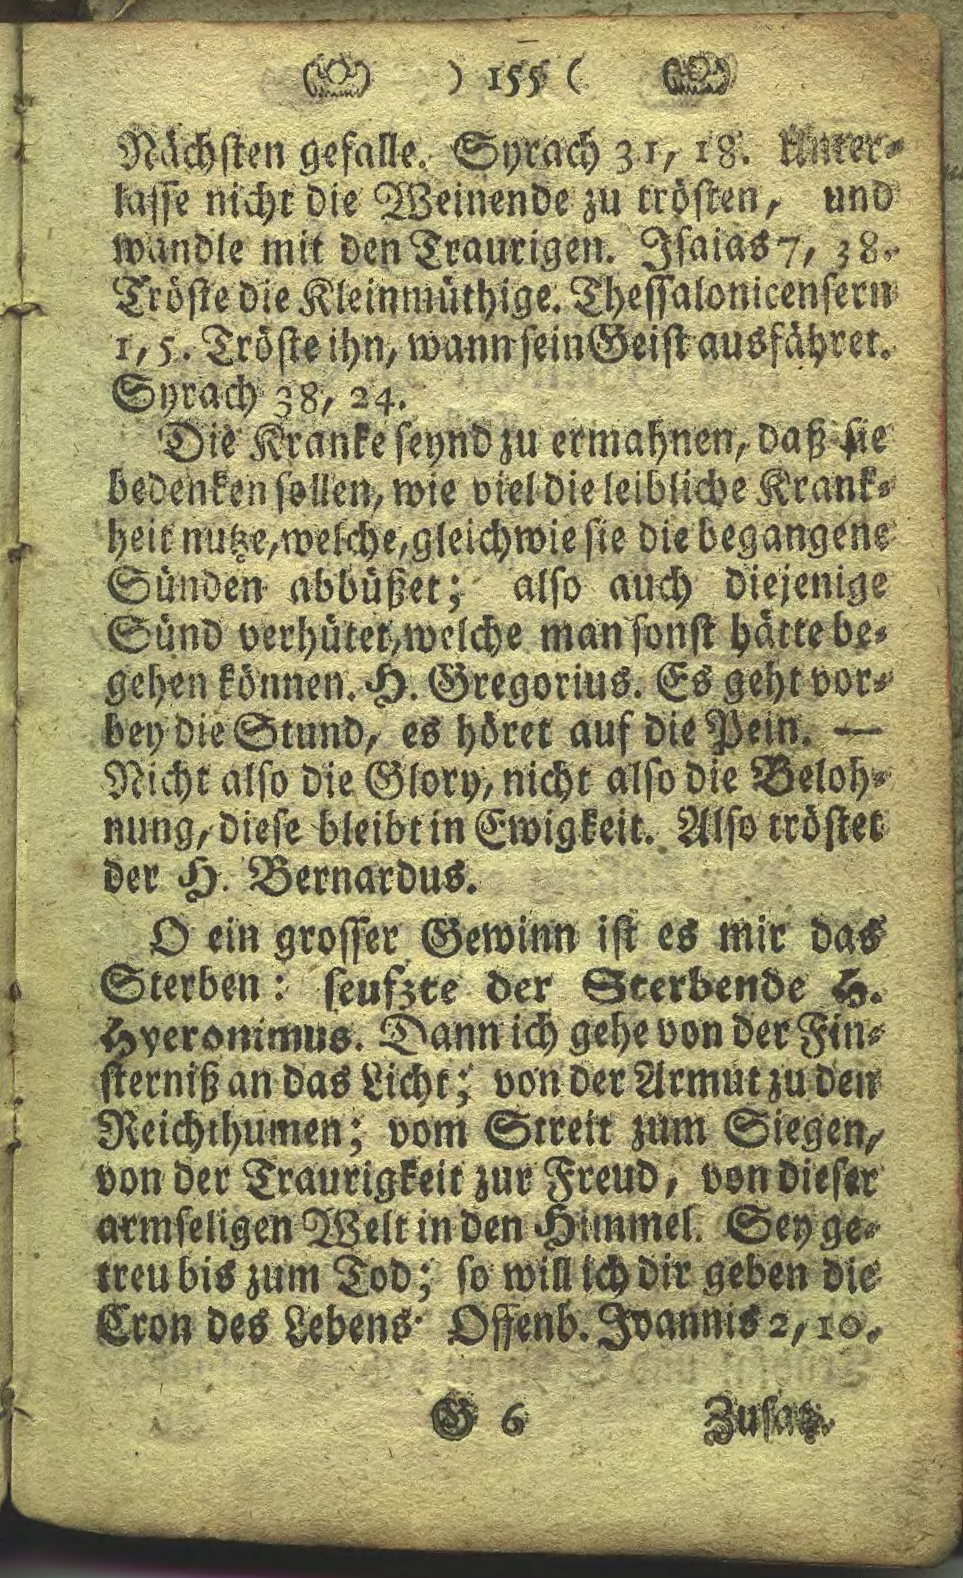 ) 155 (
Nächsten gefalle. Syrach 31, 18. Unter-
lasse nicht die Weinende zu trösten, und
wandle mit den Traurigen. Isaias 7, 38.
Tröste die Kleinmüthige. Thessalonicensern
1, 5. Tröste ihn, wann sein Geist ausfähret.
Syrach 38, 24.
Die Kranke seynd zu ermahnen, daß sie
bedenken sollen, wie viel die leibliche Krank-
heit nutze, welche, gleichwie sie die begangene
Sünden abbüßet; also auch diejenige
Sünd verhütet, welche man sonst hätte be-
gehen können. H. Gregorius. Es geht vor-
bey die Stund, es höret auf die Pein. —
Nicht also die Glory, nicht also die Beloh-
nung, diese bleibt in Ewigkeit. Also tröstet
der H. Bernardus.
O ein grosser Gewinn ist es mir das
Sterben: seufzte der Sterbende H.
Hyeronimus. Dann ich gehe von der Fin-
sterniß an das Licht; von der Armut zu den
Reichthumen; vom Streit zum Siegen,
von der Traurigkeit zur Freud, von dieser
armseligen Welt in den Himmel. Sey ge-
treu bis zum Tod; so will ich dir geben die
Cron des Lebens. Offenb. Joannis 2, 10.
G 6 Zusatz.